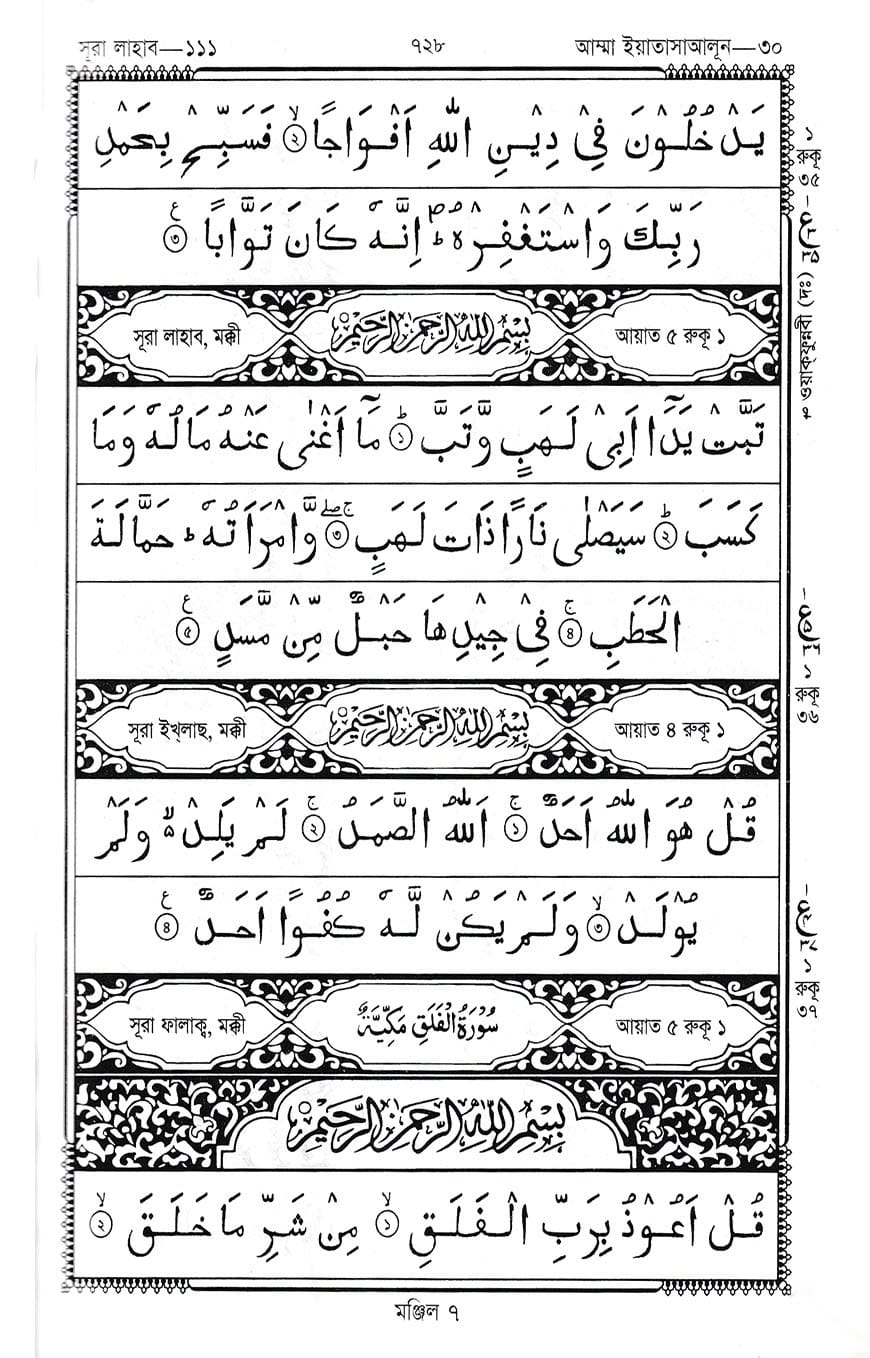 সূরা লাহাব—১১১ ৭২৮ আম্মা ইয়াতাসাআলূন—৩০
يَدْخُلُوْنَ فِيْ دِيْنِ اللّٰهِ اَفْوَاجًا ۙ﴿২﴾ فَسَبِّحْ بِحَمْدِ
رَبِّكَ وَاسْتَغْفِرْهُ ؕ اِنَّهٗ كَانَ تَوَّابًا ﴿৩﴾
সূরা লাহাব, মক্কী بِسْمِ اللّٰهِ الرَّحْمٰنِ الرَّحِيْمِ আয়াত ৫ রুকূ ১
تَبَّتْ يَدَاۤ اَبِيْ لَهَبٍ وَّتَبَّ ؕ﴿১﴾ مَاۤ اَغْنٰى عَنْهُ مَالُهٗ وَمَا
كَسَبَ ؕ﴿২﴾ سَيَصْلٰى نَارًا ذَاتَ لَهَبٍ ﴿৩﴾ وَّامْرَاَتُهٗ ؕ حَمَّالَةَ
الْحَطَبِ ۚ﴿৪﴾ فِيْ جِيْدِهَا حَبْلٌ مِّنْ مَّسَدٍ ﴿৫﴾
সূরা ইখ্‌লাছ, মক্কী بِسْمِ اللّٰهِ الرَّحْمٰنِ الرَّحِيْمِ আয়াত ৪ রুকূ ১
قُلْ هُوَ اللّٰهُ اَحَدٌ ۚ﴿১﴾ اَللّٰهُ الصَّمَدُ ۚ﴿২﴾ لَمْ يَلِدْ ۙ وَلَمْ
يُوْلَدْ ۙ﴿৩﴾ وَلَمْ يَكُنْ لَّهٗ كُفُوًا اَحَدٌ ﴿৪﴾
সূরা ফালাক্ব, মক্কী سُوْرَةُ الْفَلَقِ مَكِّيَّةٌ আয়াত ৫ রুকূ ১
بِسْمِ اللّٰهِ الرَّحْمٰنِ الرَّحِيْمِ
قُلْ اَعُوْذُ بِرَبِّ الْفَلَقِ ۙ﴿১﴾ مِنْ شَرِّ مَا خَلَقَ ۙ﴿২﴾
মঞ্জিল ৭
১
রুকূ
৩৫
ওয়াক্‌ফুন্নবী (দঃ)
১
রুকূ
৩৬
১
রুকূ
৩৭